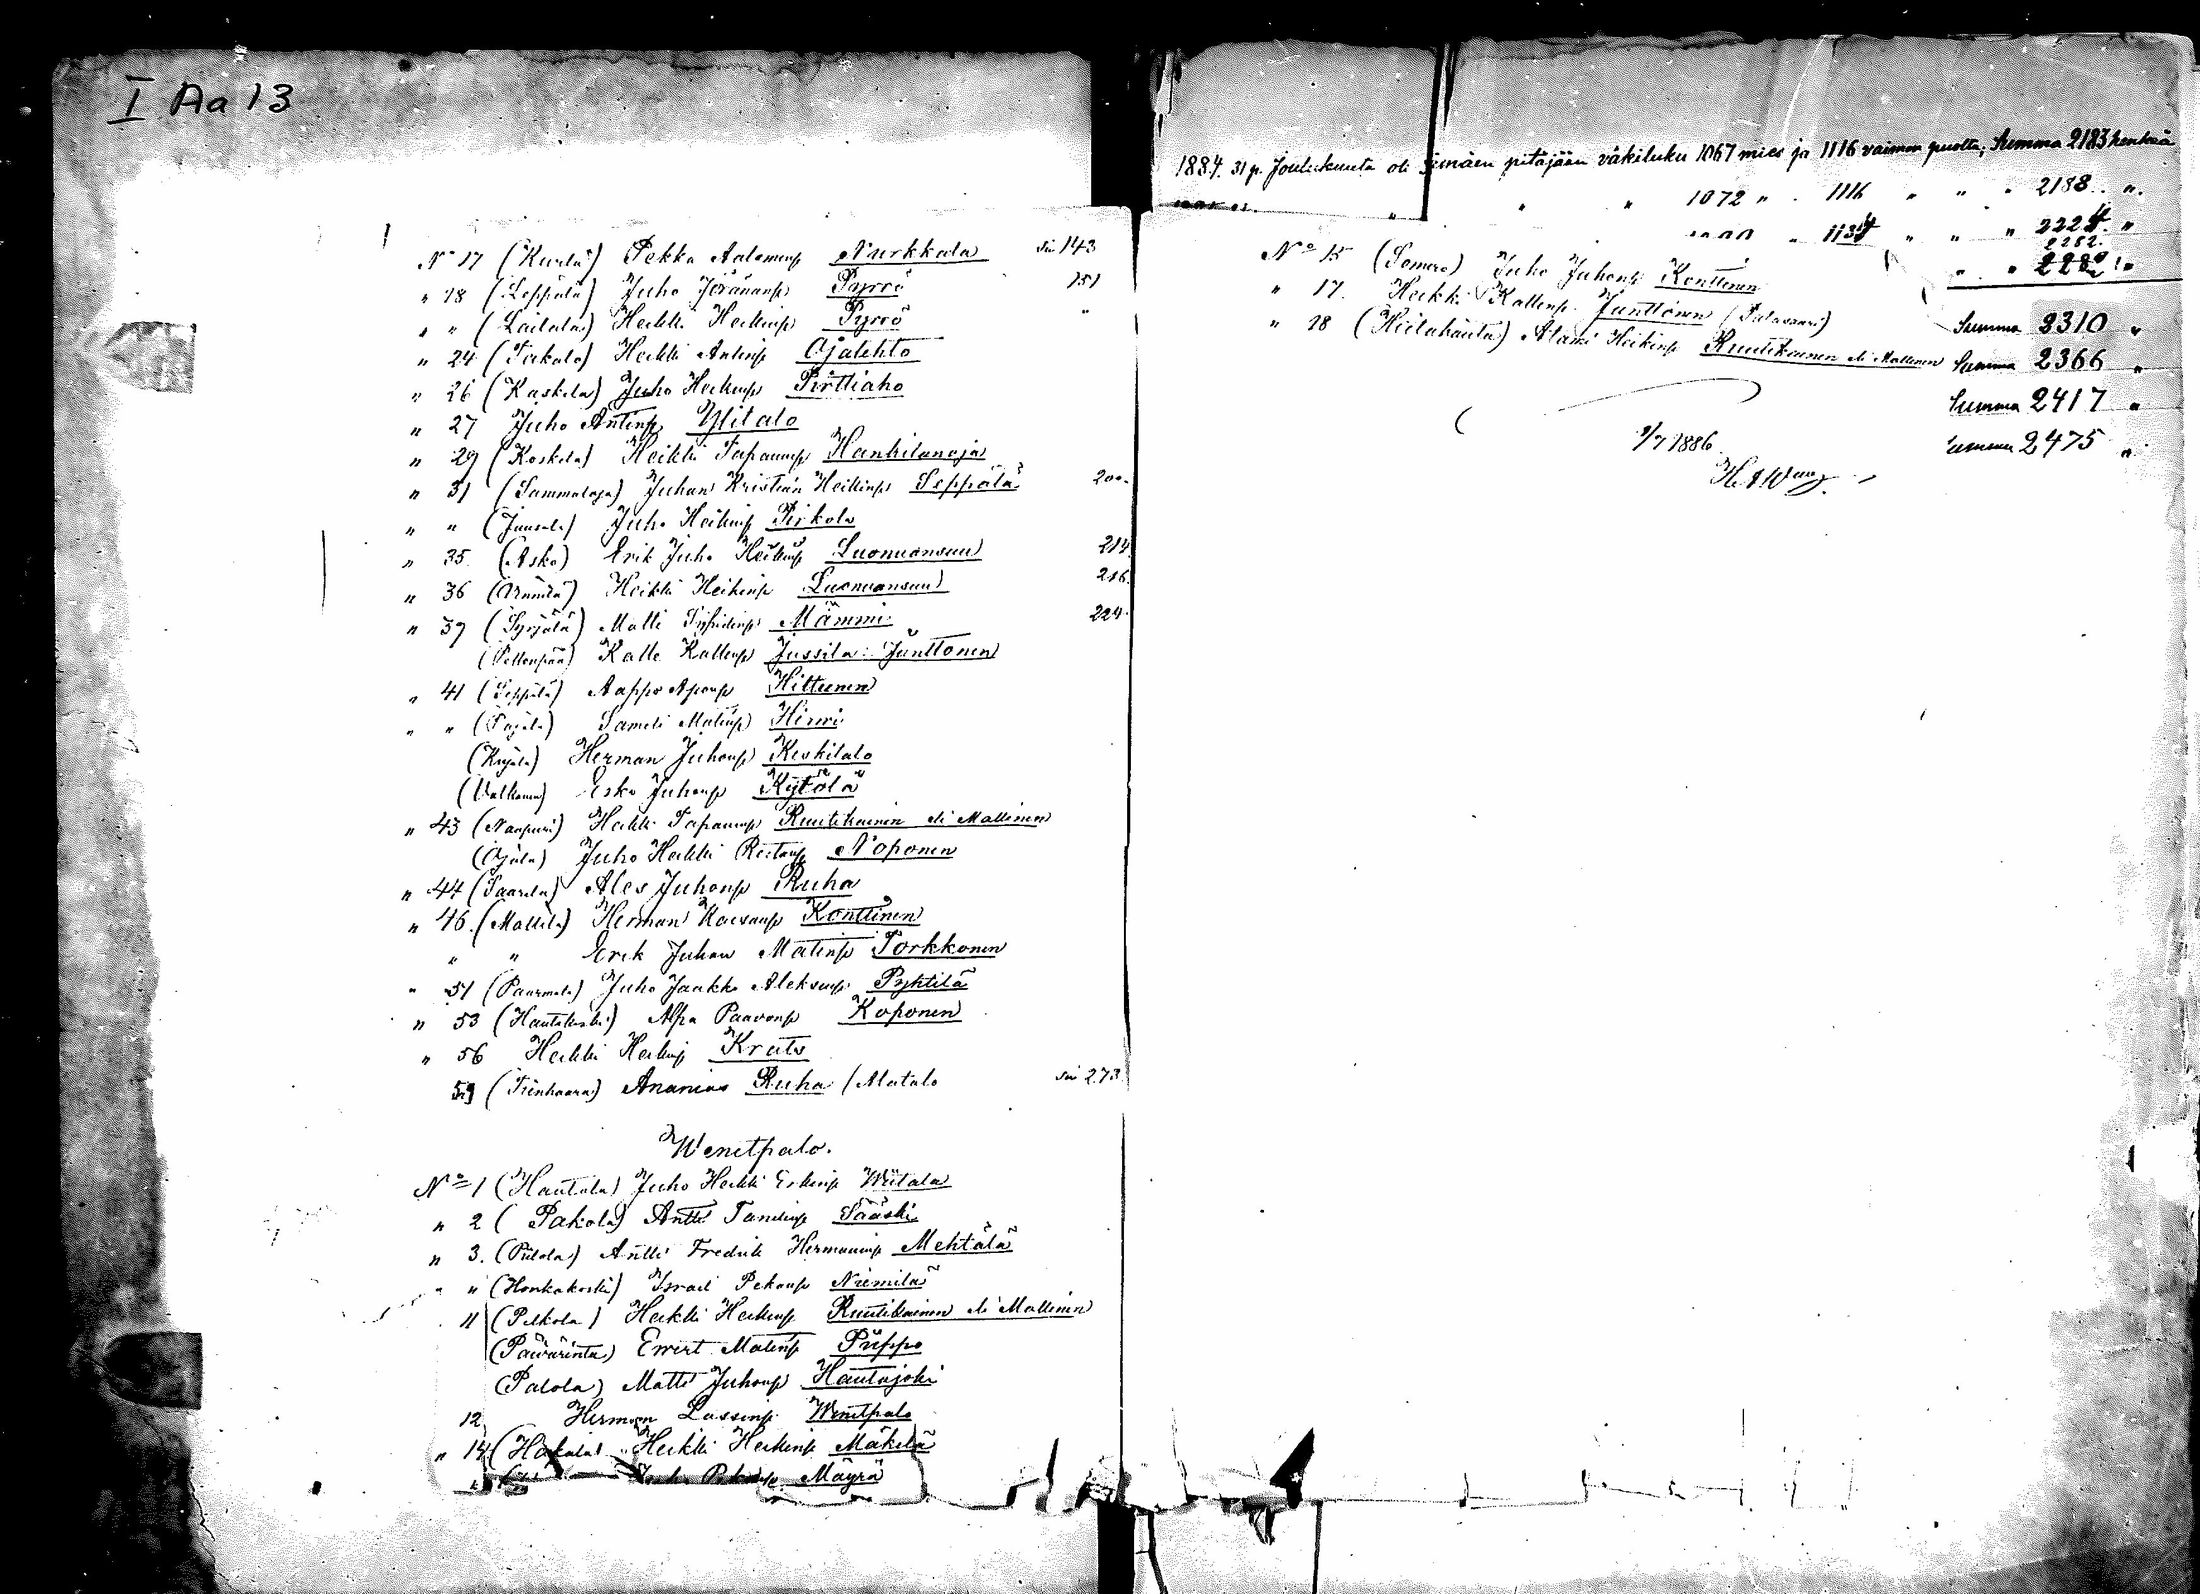 I Aa 13
No 17 (Kurla) Pekka Aataminp Nurkkala siv 143
" 18 (Leppälä) Juho Yränänp Pyrrö 151
" " (Lailala) Heikki Heikinp Pyrrö "
" 24 (Takala) Heikki Antinp Ojalehto
" 26 (Kaskela) Juho Heikinp Pirttiaho
" 27 Juho Antinp Ylitalo
" 29 (Koskela) Heikki Tapaninp Hankilanoja
" 31 (Sammaloja) Juhan Kristian Heikinp Seppälä 200.
" " (Jussila) Juho Heikinp Pirkola
" 35 (Asko) Erik Juho Heikinp Luonuansuu 214
" 36 (Annila) Heikki Heikinp Luonuansuu 216.
" 39 (Syrjälä) Matti Sifridinp Mämmi 224.
(Peltonpää) Kalle Kallenp Jussila: Junttonen
" 41 (Seppälä) Aappo Aponp Hiltunen
" " (Pajala) Sameli Matinp Hinri
(Kujala) Herman Juhonp Keskitalo
(Valkama) Esko Juhonp Kytölä
" 43 (Naapuri) Heikki Tapaninp Ruutikainen eli Mallinen
(Ojala) Juho Heikki Ristonp Noponen
" 44 (Saarela) Ales Juhonp Ruha
" 46. (Mattila) Herman Kaesanp Konttinen
" " Erik Juhan Matinp Torkkonen
" 51 (Paarmala) Juho Jaakko Aleksinp Pyhtilä
" 53 (Hautakoski) Apa Paavonp Koponen
" 56 Heikki Heikinp Krats
59 (Tienhaara) Ananias Ruha (Alatalo siv 273.
Wenetpalo.
No 1 (Hautala) Juho Heikki Erkinp Wiitala
" 2 (Pakola) Antti Tanelinp Sääski
" 3. (Piilola) Antti Fredrik Hermaninp Mehtälä
" " (Honkakoski) Israel Pekanp Niemilä
11 (Pelkola) Heikki Heikinp Ruutikainen eli Mallinen
(Päivärinta) Evert Matinp Piippo
(Palola) Matti Juhonp Hautajoki
12 Herman Lassinp Wenetpalo
" 14 (Hakala) Heikki Heikinp Mäkelä
Pekanp Mäyrä
1884. 31 p. Joulukuuta oli pitäjään väkiluku 1067 mies ja 1116 vaimon puolta; Summa 2183 henkeä
" " " 1072 " . 1116 " " " 2188. "
" 1134 " " " 2224. "
2252.
" " 2280 "
No 15 (Somero) Juho Juhonp Konttinen
" 17. Heikki Kallenp Junttonen (Palosaari)
Summa 2310 "
" 18 (Hiilahauta) Atami Heikinp Ruutikainen eli Mallinen
Summa 2366 "
Summa 2417 "
/7 1886.
Summa 2475 "